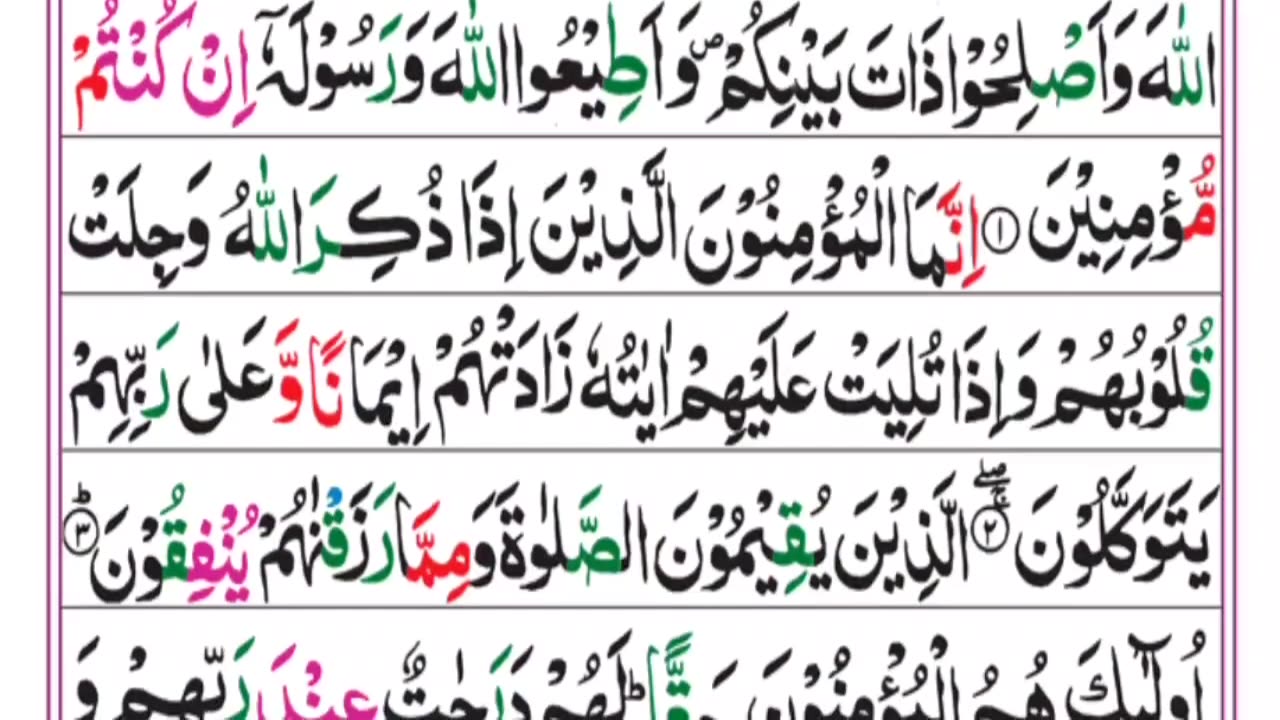 اللّٰهَ وَاَصْلِحُوْا ذَاتَ بَيْنِكُمْ ۖ وَاَطِيْعُوا اللّٰهَ وَرَسُوْلَهٗۤ اِنْ كُنْتُمْ
مُّؤْمِنِيْنَ ۝۱ اِنَّمَا الْمُؤْمِنُوْنَ الَّذِيْنَ اِذَا ذُكِرَ اللّٰهُ وَجِلَتْ
قُلُوْبُهُمْ وَاِذَا تُلِيَتْ عَلَيْهِمْ اٰيٰتُهٗ زَادَتْهُمْ اِيْمَانًا وَّعَلٰى رَبِّهِمْ
يَتَوَكَّلُوْنَ ۝۲ۚۖ الَّذِيْنَ يُقِيْمُوْنَ الصَّلٰوةَ وَمِمَّا رَزَقْنٰهُمْ يُنْفِقُوْنَ ۝۳ؕ
اُولٰٓئِكَ هُمُ الْمُؤْمِنُوْنَ حَقًّا ؕ لَهُمْ دَرَجٰتٌ عِنْدَ رَبِّهِمْ وَ